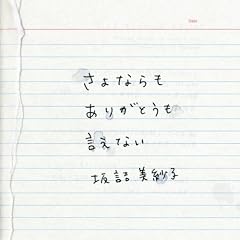 さよならも
ありがとうも
言えてない
坂詰美紗子